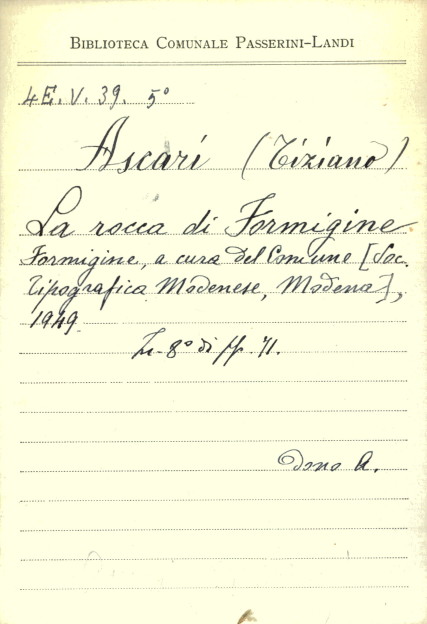 BIBLIOTECA COMUNALE PASSERINI-LANDI
4E. V. 39. 5°
Ascari (Tiziano)
La rocca di Formigine
Formigine, a cura del Comune [Soc.
Tipografica Modenese, Modena],
1949
In-8° di pp. 71.
Dono A.